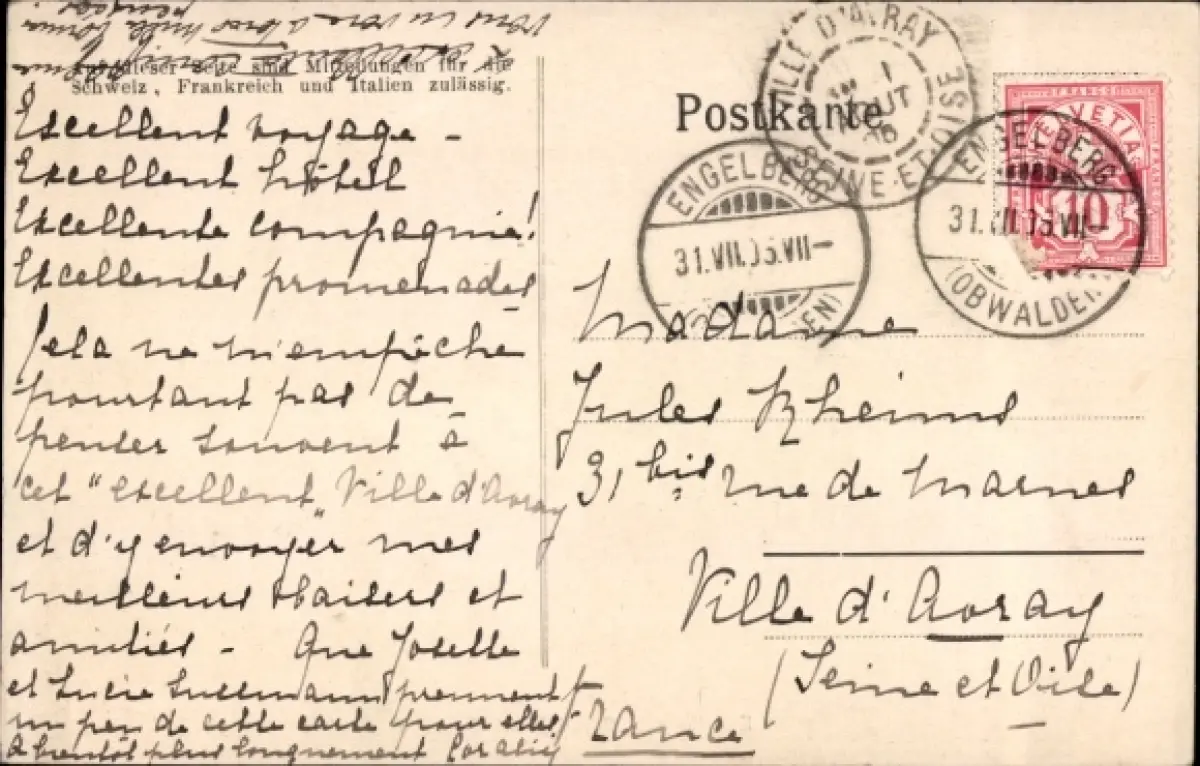 Auf dieser Seite sind Mitteilungen für die
Schweiz, Frankreich und Italien zulässig.
Excellent voyage -
Excellent hôtel
Excellente compagnie!
Excellentes promenades
Cela ne m'empêche
pourtant pas de
penser souvent à
cet "excellent" Ville d'Avray
et d'y envoyer mes
meilleurs baisers et
amitiés - Que Josette
et Lucie prennent
un peu de cette carte pour elles
à bientôt plus longuement
Postkarte
VILLE D'AVRAY
SEINE-ET-OISE
ENGELBERG
31.VII.
ENGELBERG
31.VII.
(OBWALDEN)
HELVETIA
FRANCO
10
Madame
Jules Rheims
31 bis rue de Marnes
Ville d'Avray
(Seine et Oise)
France